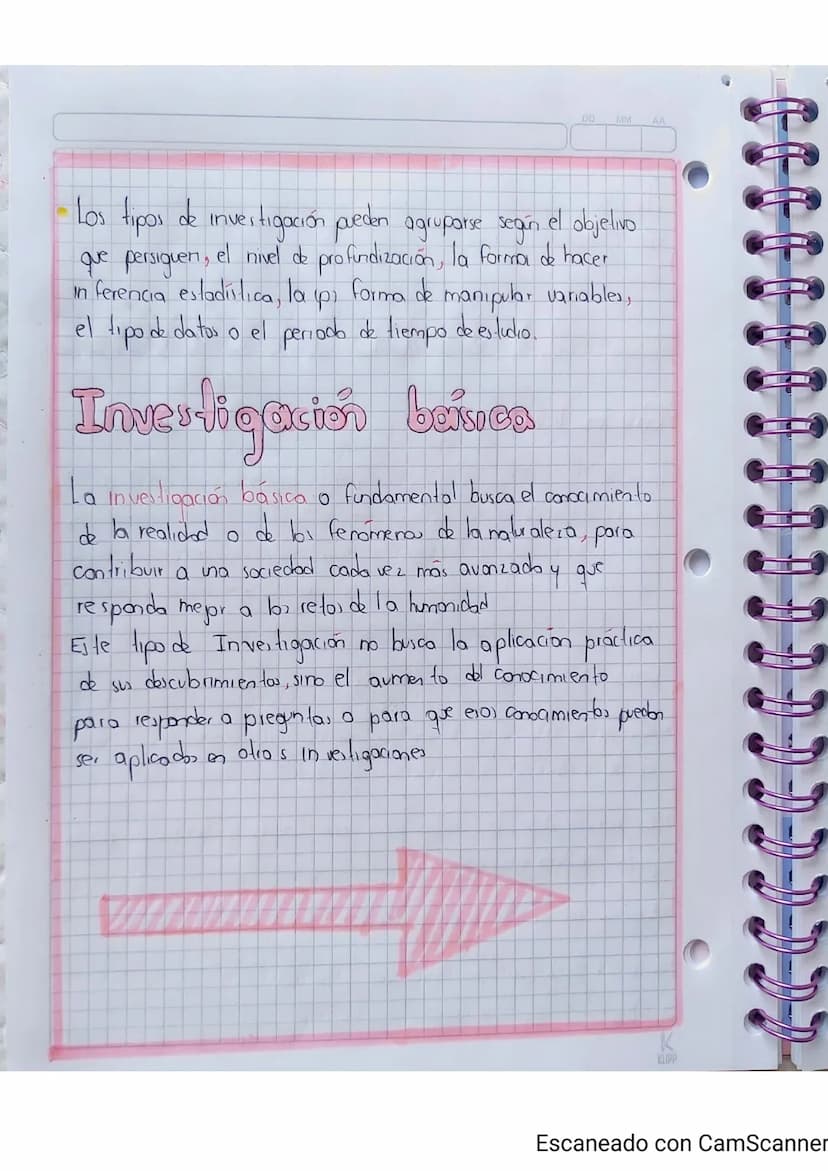 DD MM AA
Los tipos de investigación pueden agruparse según el objetivo
que persiguen, el nivel de profundización, la forma de hacer
inferencia estadística, la (p) forma de manipular variables,
el tipo de datos o el periodo de tiempo de estudio.
Investigación básica
La investigación básica o fundamental busca el conocimiento
de la realidad o de los fenómenos de la naturaleza, para
contribuir a una sociedad cada vez más avanzada y que
responda mejor a los retos de la humanidad
Este tipo de Investigación no busca la aplicación práctica
de sus descubrimientos, sino el aumento del conocimiento
para responder a preguntas o para que esos conocimientos puedan
ser aplicados en otros investigaciones
K
KLIPP
Escaneado con CamScanner